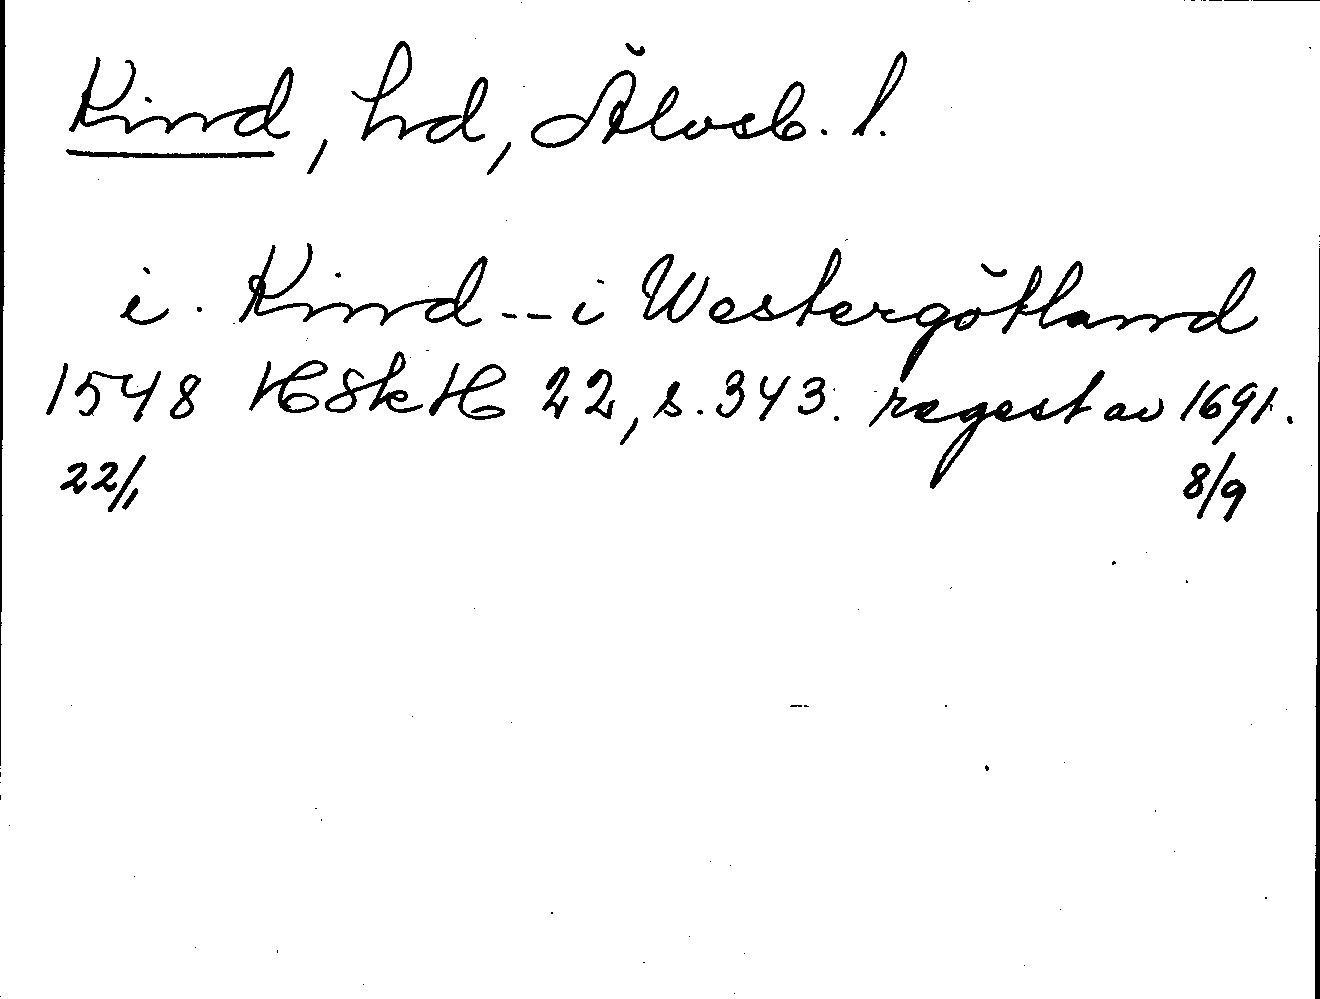 Kind, hd, Älvsb. l.
i. Kind -- i Westergötland
1548 HSkH 22, s. 343. regest av 1691.
22/1 8/9